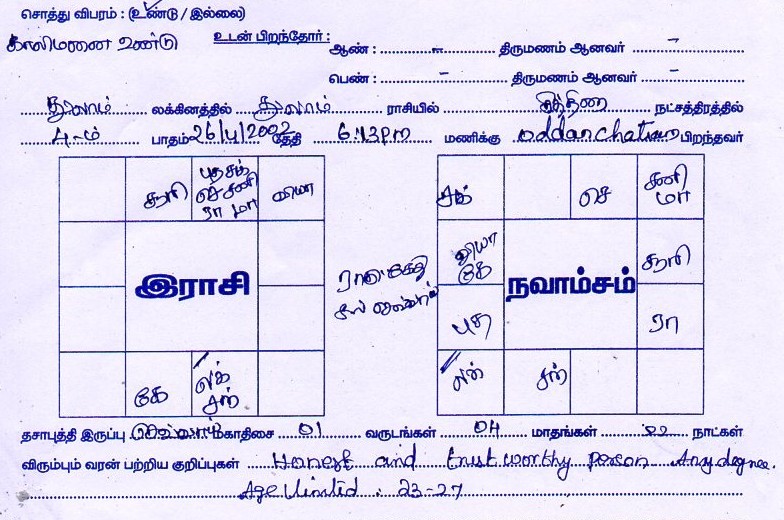 சொத்து விபரம் : (உண்டு / இல்லை)
காலிமனை உண்டு
உடன் பிறந்தோர் :
ஆண் : - திருமணம் ஆனவர் -
பெண் : - திருமணம் ஆனவர் -
துலாம் லக்கினத்தில் துலாம் ராசியில் சித்திரை நட்சத்திரத்தில்
4-ம் பாதம் 26/4/2002 தேதி 6:13pm மணிக்கு oddanchatram பிறந்தவர்
சூரி
புத சுக்
செ சனி
ரா மா
வியா
இராசி
கே
லக்
சந்
சுக்
செ
சனி
மா
வியா
கே
சூரி
நவாம்சம்
புத
ரா
லக்
சந்
ராகு கேது
தசாபுத்தி இருப்பு செவ்வாய் மகாதிசை 01 வருடங்கள் 04 மாதங்கள் 22 நாட்கள்
விரும்பும் வரன் பற்றிய குறிப்புகள் Honest and trust worthy person Any degree.
Age Limited : 23-27